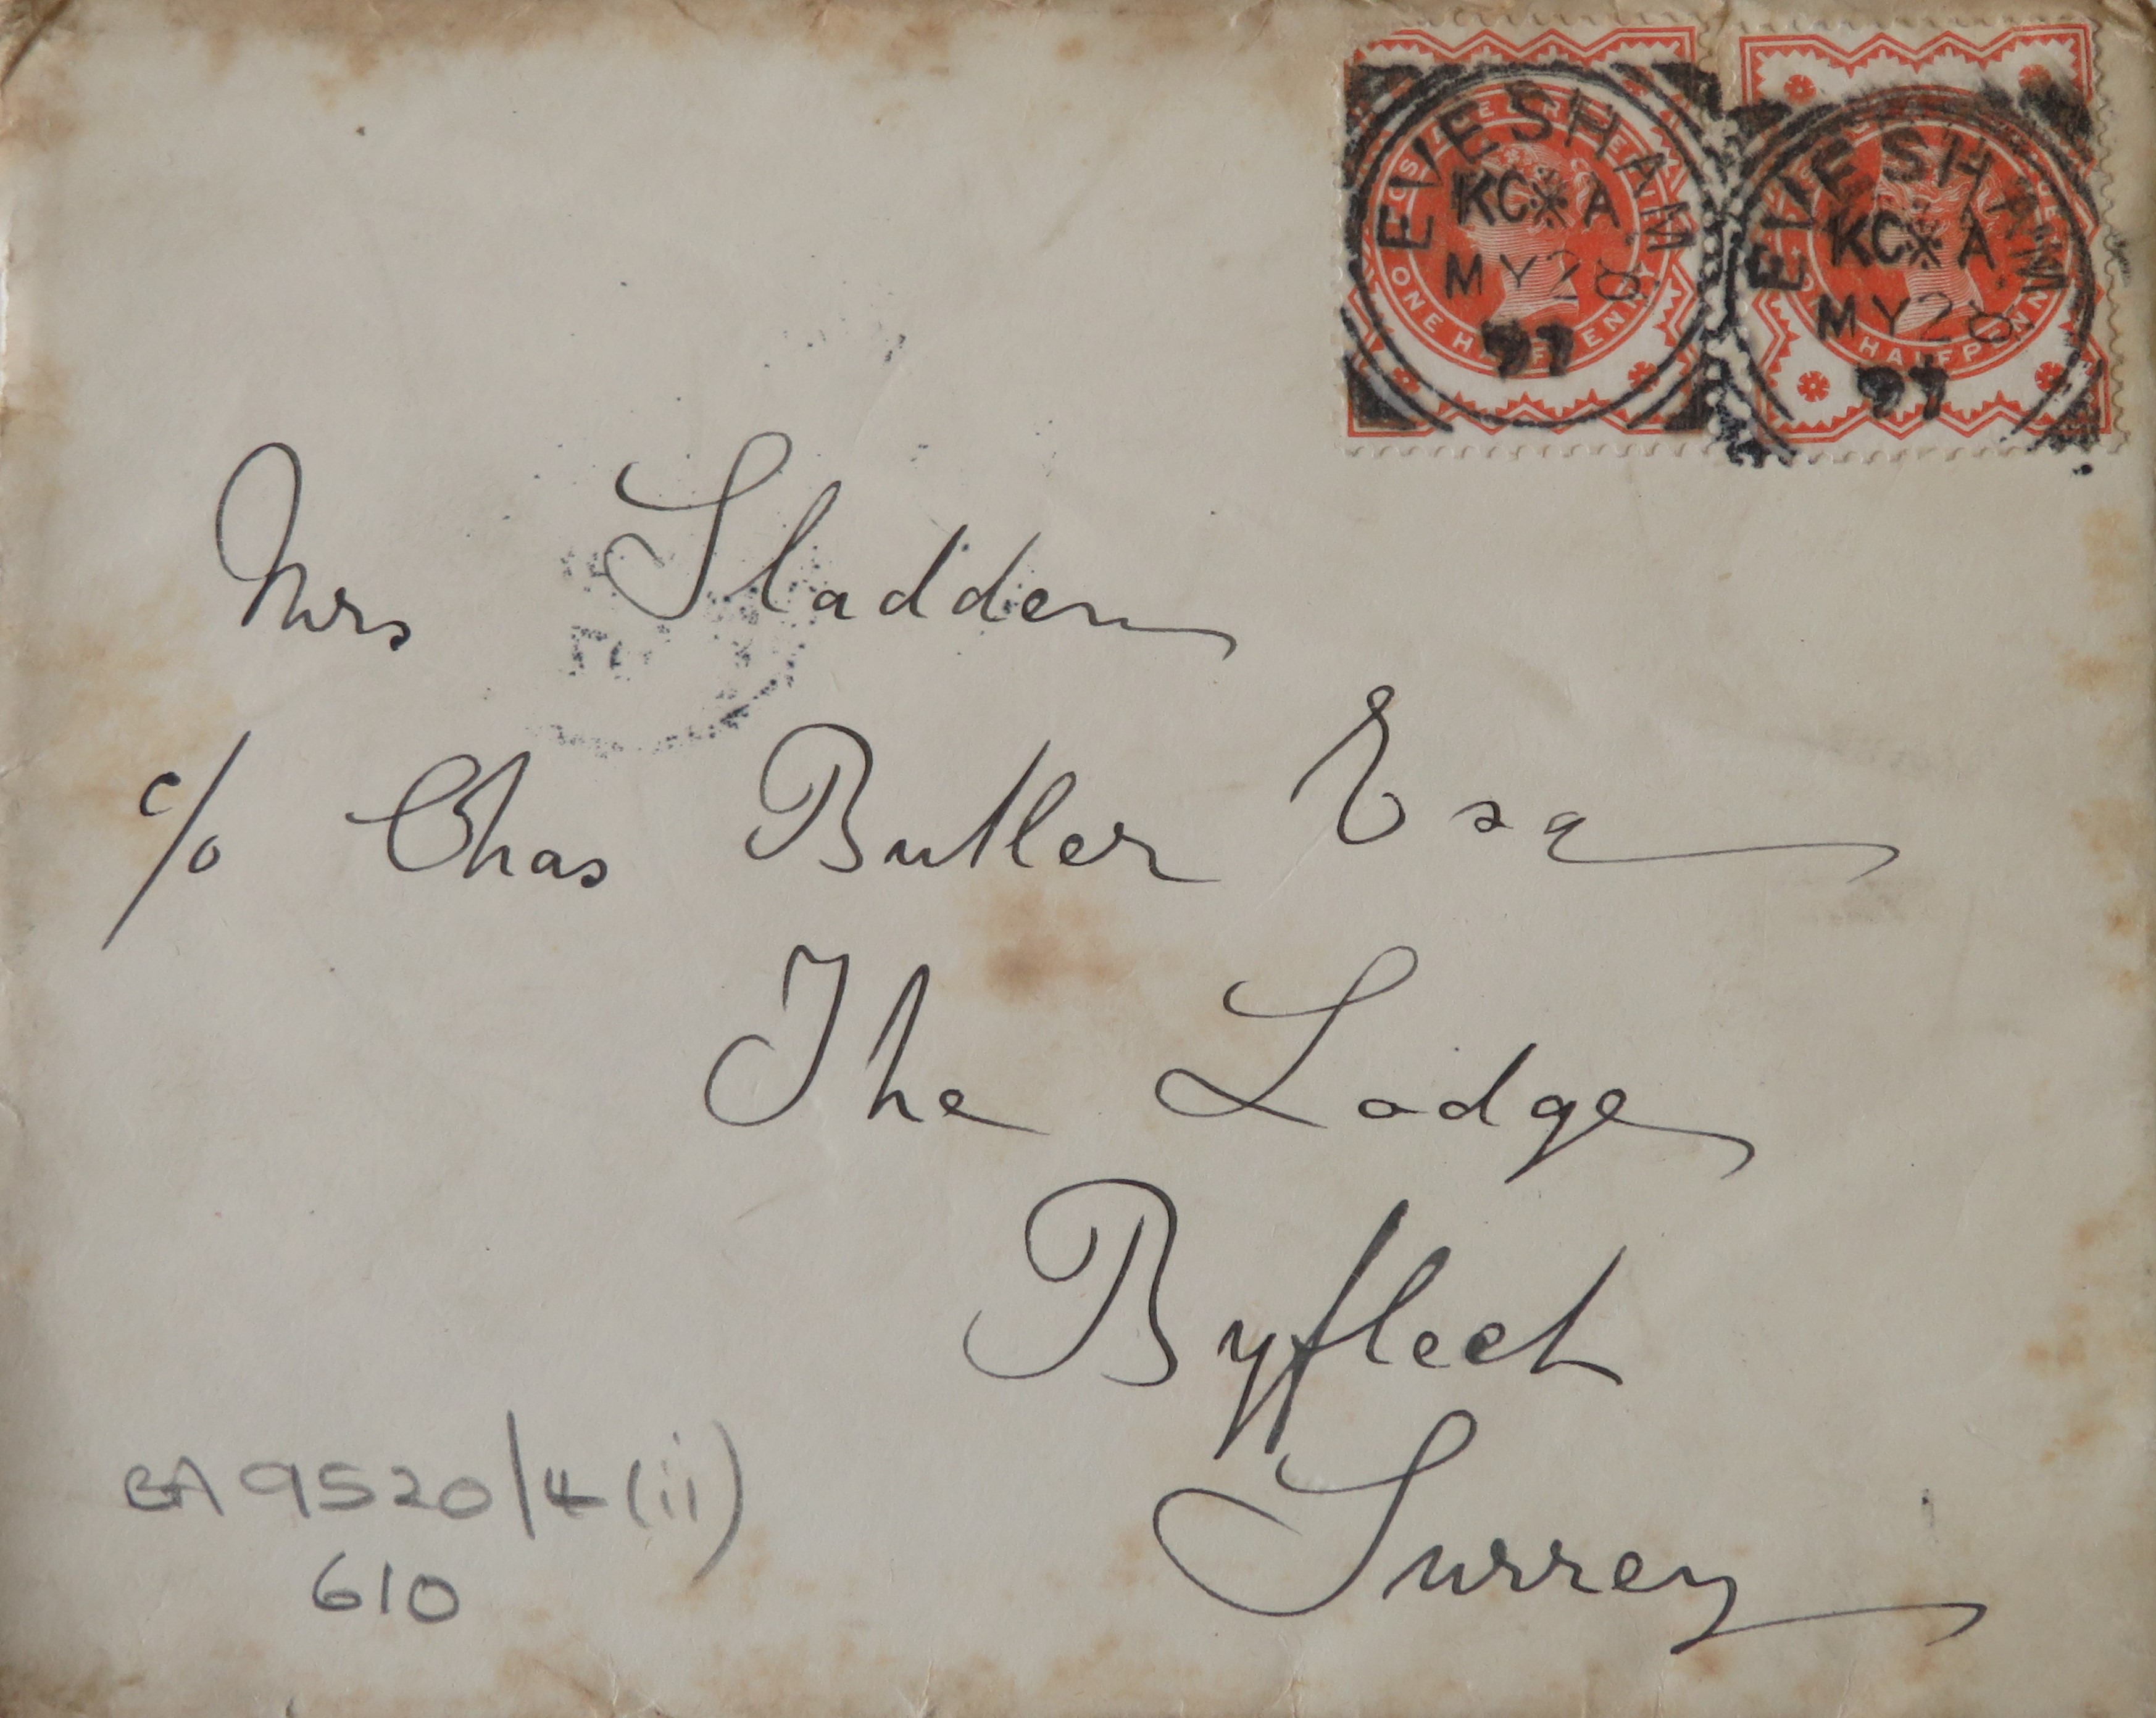 POSTAGE & REVENUE
ONE HALFPENNY
EVESHAM
KC A
MY 28
97
HALFPENNY
EVESHAM
KC A
MY 28
97
Mrs Sladden
c/o Chas Butler Esq
The Lodge
Byfleet
Surrey
BA 9520/4 (ii)
610